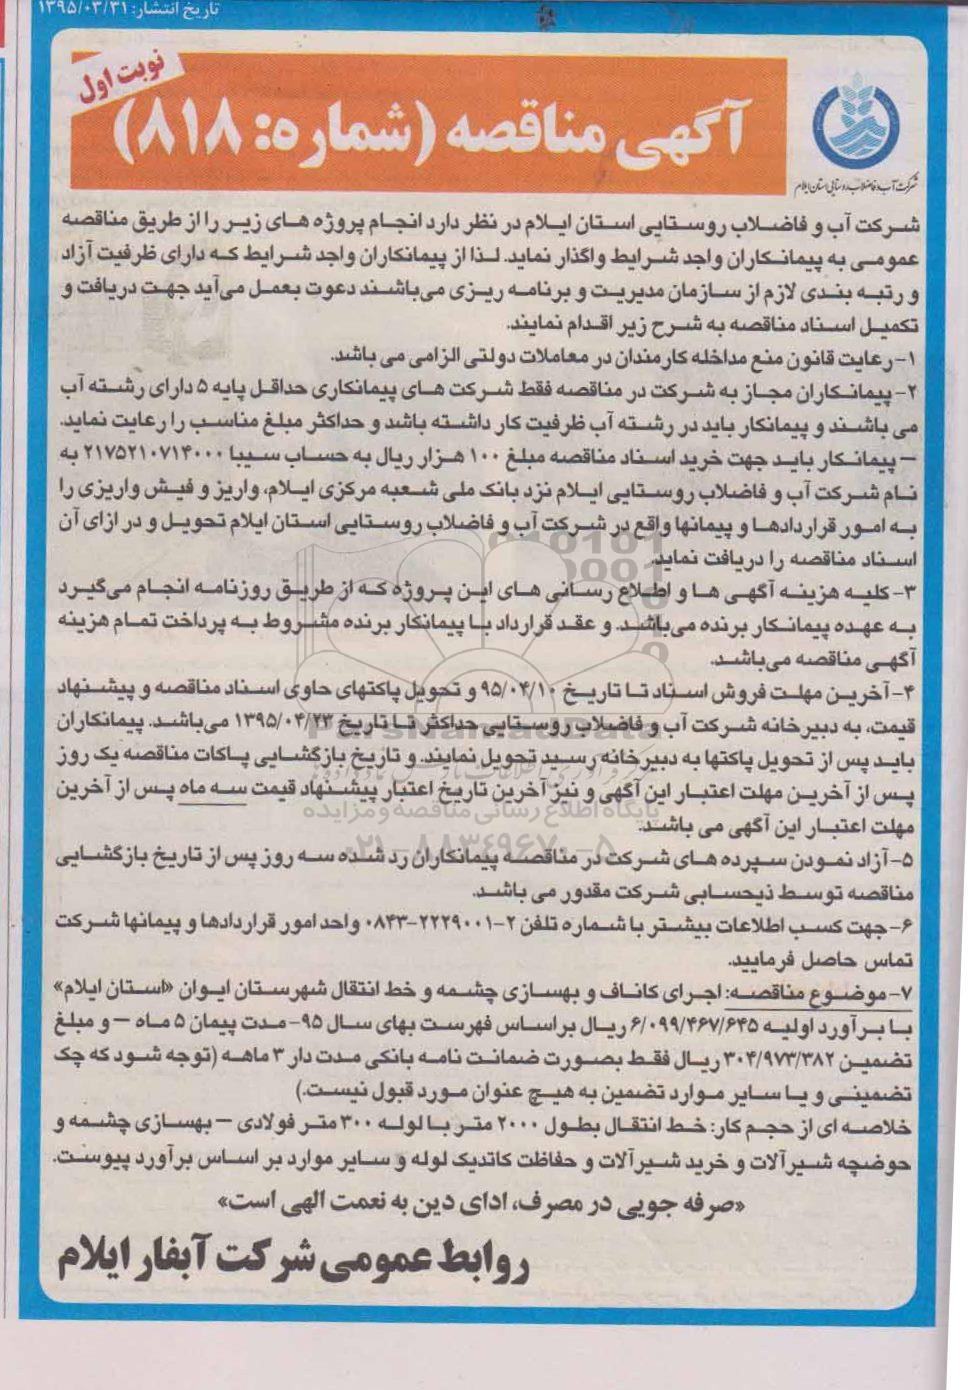 تاریخ انتشار: ۱۳۹۵/۰۳/۳۱
نوبت اول
آگهی مناقصه (شماره: ۸۱۸)
شرکت آب و فاضلاب روستایی استان ایلام
شرکت آب و فاضلاب روستایی استان ایلام در نظر دارد انجام پروژه های زیر را از طریق مناقصه
عمومی به پیمانکاران واجد شرایط واگذار نماید. لذا از پیمانکاران واجد شرایط که دارای ظرفیت آزاد
و رتبه بندی لازم از سازمان مدیریت و برنامه ریزی می‌باشند دعوت بعمل می‌آید جهت دریافت و
تکمیل اسناد مناقصه به شرح زیر اقدام نمایند.
۱- رعایت قانون منع مداخله کارمندان در معاملات دولتی الزامی می باشد.
۲- پیمانکاران مجاز به شرکت در مناقصه فقط شرکت های پیمانکاری حداقل پایه ۵ دارای رشته آب
می باشند و پیمانکار باید در رشته آب ظرفیت کار داشته باشد و حداکثر مبلغ مناسب را رعایت نماید.
– پیمانکار باید جهت خرید اسناد مناقصه مبلغ ۱۰۰ هزار ریال به حساب سیبا ۲۱۷۵۲۱۰۷۱۴۰۰۰ به
نام شرکت آب و فاضلاب روستایی ایلام نزد بانک ملی شعبه مرکزی ایلام، واریز و فیش واریزی را
به امور قراردادها و پیمانها واقع در شرکت آب و فاضلاب روستایی استان ایلام تحویل و در ازای آن
اسناد مناقصه را دریافت نماید.
۳- کلیه هزینه آگهی ها و اطلاع رسانی های این پروژه که از طریق روزنامه انجام می‌گیرد
به عهده پیمانکار برنده می‌باشد. و عقد قرارداد با پیمانکار برنده مشروط به پرداخت تمام هزینه
آگهی مناقصه می‌باشد.
۴- آخرین مهلت فروش اسناد تا تاریخ ۹۵/۰۴/۱۰ و تحویل پاکتهای حاوی اسناد مناقصه و پیشنهاد
قیمت، به دبیرخانه شرکت آب و فاضلاب روستایی حداکثر تا تاریخ ۱۳۹۵/۰۴/۲۳ می‌باشد. پیمانکاران
باید پس از تحویل پاکتها به دبیرخانه رسید تحویل نمایند. و تاریخ بازگشایی پاکات مناقصه یک روز
پس از آخرین مهلت اعتبار این آگهی و نیز آخرین تاریخ اعتبار پیشنهاد قیمت سه ماه پس از آخرین
مهلت اعتبار این آگهی می باشد.
پایگاه اطلاع رسانی مناقصه و مزایده
۰۲۱-۸۸۳۴۹۶۷۰-۵
۵- آزاد نمودن سپرده های شرکت در مناقصه پیمانکاران رد شده سه روز پس از تاریخ بازگشایی
مناقصه توسط ذیحسابی شرکت مقدور می باشد.
۶- جهت کسب اطلاعات بیشتر با شماره تلفن ۲-۲۲۲۹۰۰۱-۰۸۴۳ واحد امور قراردادها و پیمانها شرکت
تماس حاصل فرمایید.
۷- موضوع مناقصه: اجرای کاناف و بهسازی چشمه و خط انتقال شهرستان ایوان «استان ایلام»
با برآورد اولیه ۶/۰۹۹/۴۶۷/۶۴۵ ریال براساس فهرست بهای سال ۹۵- مدت پیمان ۵ ماه – و مبلغ
تضمین ۳۰۴/۹۷۳/۳۸۲ ریال فقط بصورت ضمانت نامه بانکی مدت دار ۳ ماهه (توجه شود که چک
تضمینی و یا سایر موارد تضمین به هیچ عنوان مورد قبول نیست.)
خلاصه ای از حجم کار: خط انتقال بطول ۲۰۰۰ متر با لوله ۳۰۰ متر فولادی – بهسازی چشمه و
حوضچه شیرآلات و خرید شیرآلات و حفاظت کاتدیک لوله و سایر موارد بر اساس برآورد پیوست.
«صرفه جویی در مصرف، ادای دین به نعمت الهی است»
روابط عمومی شرکت آبفار ایلام